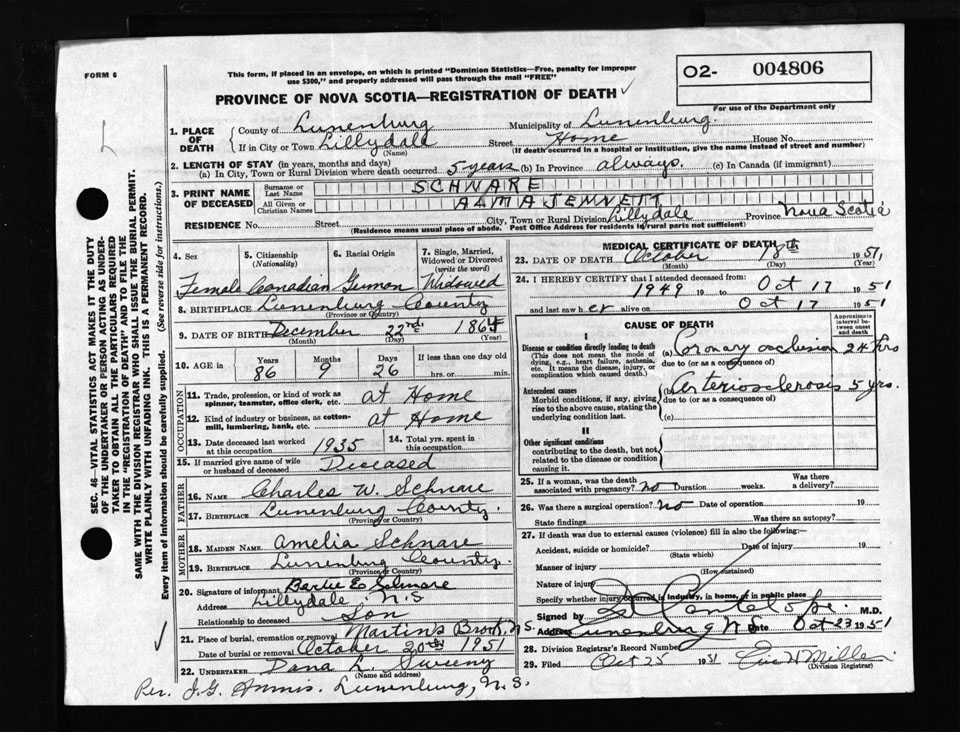 FORM 6
This form, if placed in an envelope, on which is printed "Dominion Statistics—Free, penalty for improper
use $300," and properly addressed will pass through the mail "FREE"
PROVINCE OF NOVA SCOTIA—REGISTRATION OF DEATH
O2- 004806
For use of the Department only
1. PLACE OF DEATH
County of Lunenburg Municipality of Lunenburg.
If in City or Town Lillydale Street Home House No.
(Name) (If death occurred in a hospital or institution, give the name instead of street and number)
2. LENGTH OF STAY (in years, months and days)
(a) In City, Town or Rural Division where death occurred 5 years (b) In Province always. (c) In Canada (if immigrant)
3. PRINT NAME OF DECEASED
Surname or Last Name SCHNARE
All Given or Christian Names ALMA JENNETT
RESIDENCE No. Street City, Town or Rural Division Lillydale Province Nova Scotia
(Residence means usual place of abode. Post Office Address for residents in rural parts not sufficient)
4. Sex 5. Citizenship (Nationality) 6. Racial Origin 7. Single, Married, Widowed or Divorced (write the word)
Female Canadian German Widowed
8. BIRTHPLACE Lunenburg County
(Province or Country)
9. DATE OF BIRTH December 22nd 1864
(Month) (Day) (Year)
10. AGE in Years Months Days If less than one day old
86 9 26 hrs. or min.
OCCUPATION
11. Trade, profession, or kind of work as spinner, teamster, office clerk, etc. at Home
12. Kind of industry or business, as cotton-mill, lumbering, bank, etc. at Home
13. Date deceased last worked at this occupation 1935 14. Total yrs. spent in this occupation
15. If married give name of wife or husband of deceased Deceased
FATHER
16. NAME Charles W. Schnare
17. BIRTHPLACE Lunenburg County.
(Province or Country)
MOTHER
18. MAIDEN NAME Amelia Schnare
19. BIRTHPLACE Lunenburg County.
(Province or Country)
20. Signature of informant E Schnare
Address Lillydale N.S
Relationship to deceased Son
21. Place of burial, cremation or removal Martins Brook, N.S.
Date of burial or removal October 20th 1951
22. UNDERTAKER Dana L. Sweeny
(Name and address)
Per. J.G. Lunenburg, N.S.
MEDICAL CERTIFICATE OF DEATH
23. DATE OF DEATH October 18th 1951,
(Month) (Day) (Year)
24. I HEREBY CERTIFY that I attended deceased from:
1949 to Oct 17 1951
and last saw her alive on Oct 17 1951
CAUSE OF DEATH
Approximate interval between onset and death
I
Disease or condition directly leading to death
(This does not mean the mode of dying, e.g., heart failure, asthenia, etc. It means the disease, injury, or complication which caused death.)
(a) Coronary occlusion 24 hrs
due to (or as a consequence of)
Antecedent causes
Morbid conditions, if any, giving rise to the above cause, stating the underlying condition last.
(b) Arteriosclerosis 5 yrs.
due to (or as a consequence of)
(c)
II
Other significant conditions
contributing to the death, but not related to the disease or condition causing it.
25. If a woman, was the death associated with pregnancy? no Duration weeks. Was there a delivery?
26. Was there a surgical operation? no Date of operation 19
State findings Was there an autopsy?
27. If death was due to external causes (violence) fill in also the following:
Accident, suicide or homicide? Date of injury 19
(State which)
Manner of injury
(How sustained)
Nature of injury
Specify whether injury occurred in industry, in home, or in public place
Signed by M.D.
Address Lunenburg N S Date Oct 23 1951
28. Division Registrar's Record Number
29. Filed Oct 25 1951 H Miller
(Division Registrar)
SEC. 46—VITAL STATISTICS ACT MAKES IT THE DUTY
OF THE UNDERTAKER OR PERSON ACTING AS UNDER-
TAKER TO OBTAIN ALL THE PARTICULARS REQUIRED
IN THE "REGISTRATION OF DEATH" AND TO FILE THE
SAME WITH THE DIVISION REGISTRAR WHO SHALL ISSUE THE BURIAL PERMIT.
WRITE PLAINLY WITH UNFADING INK. THIS IS A PERMANENT RECORD.
Every item of information should be carefully supplied. (See reverse side for instructions.)